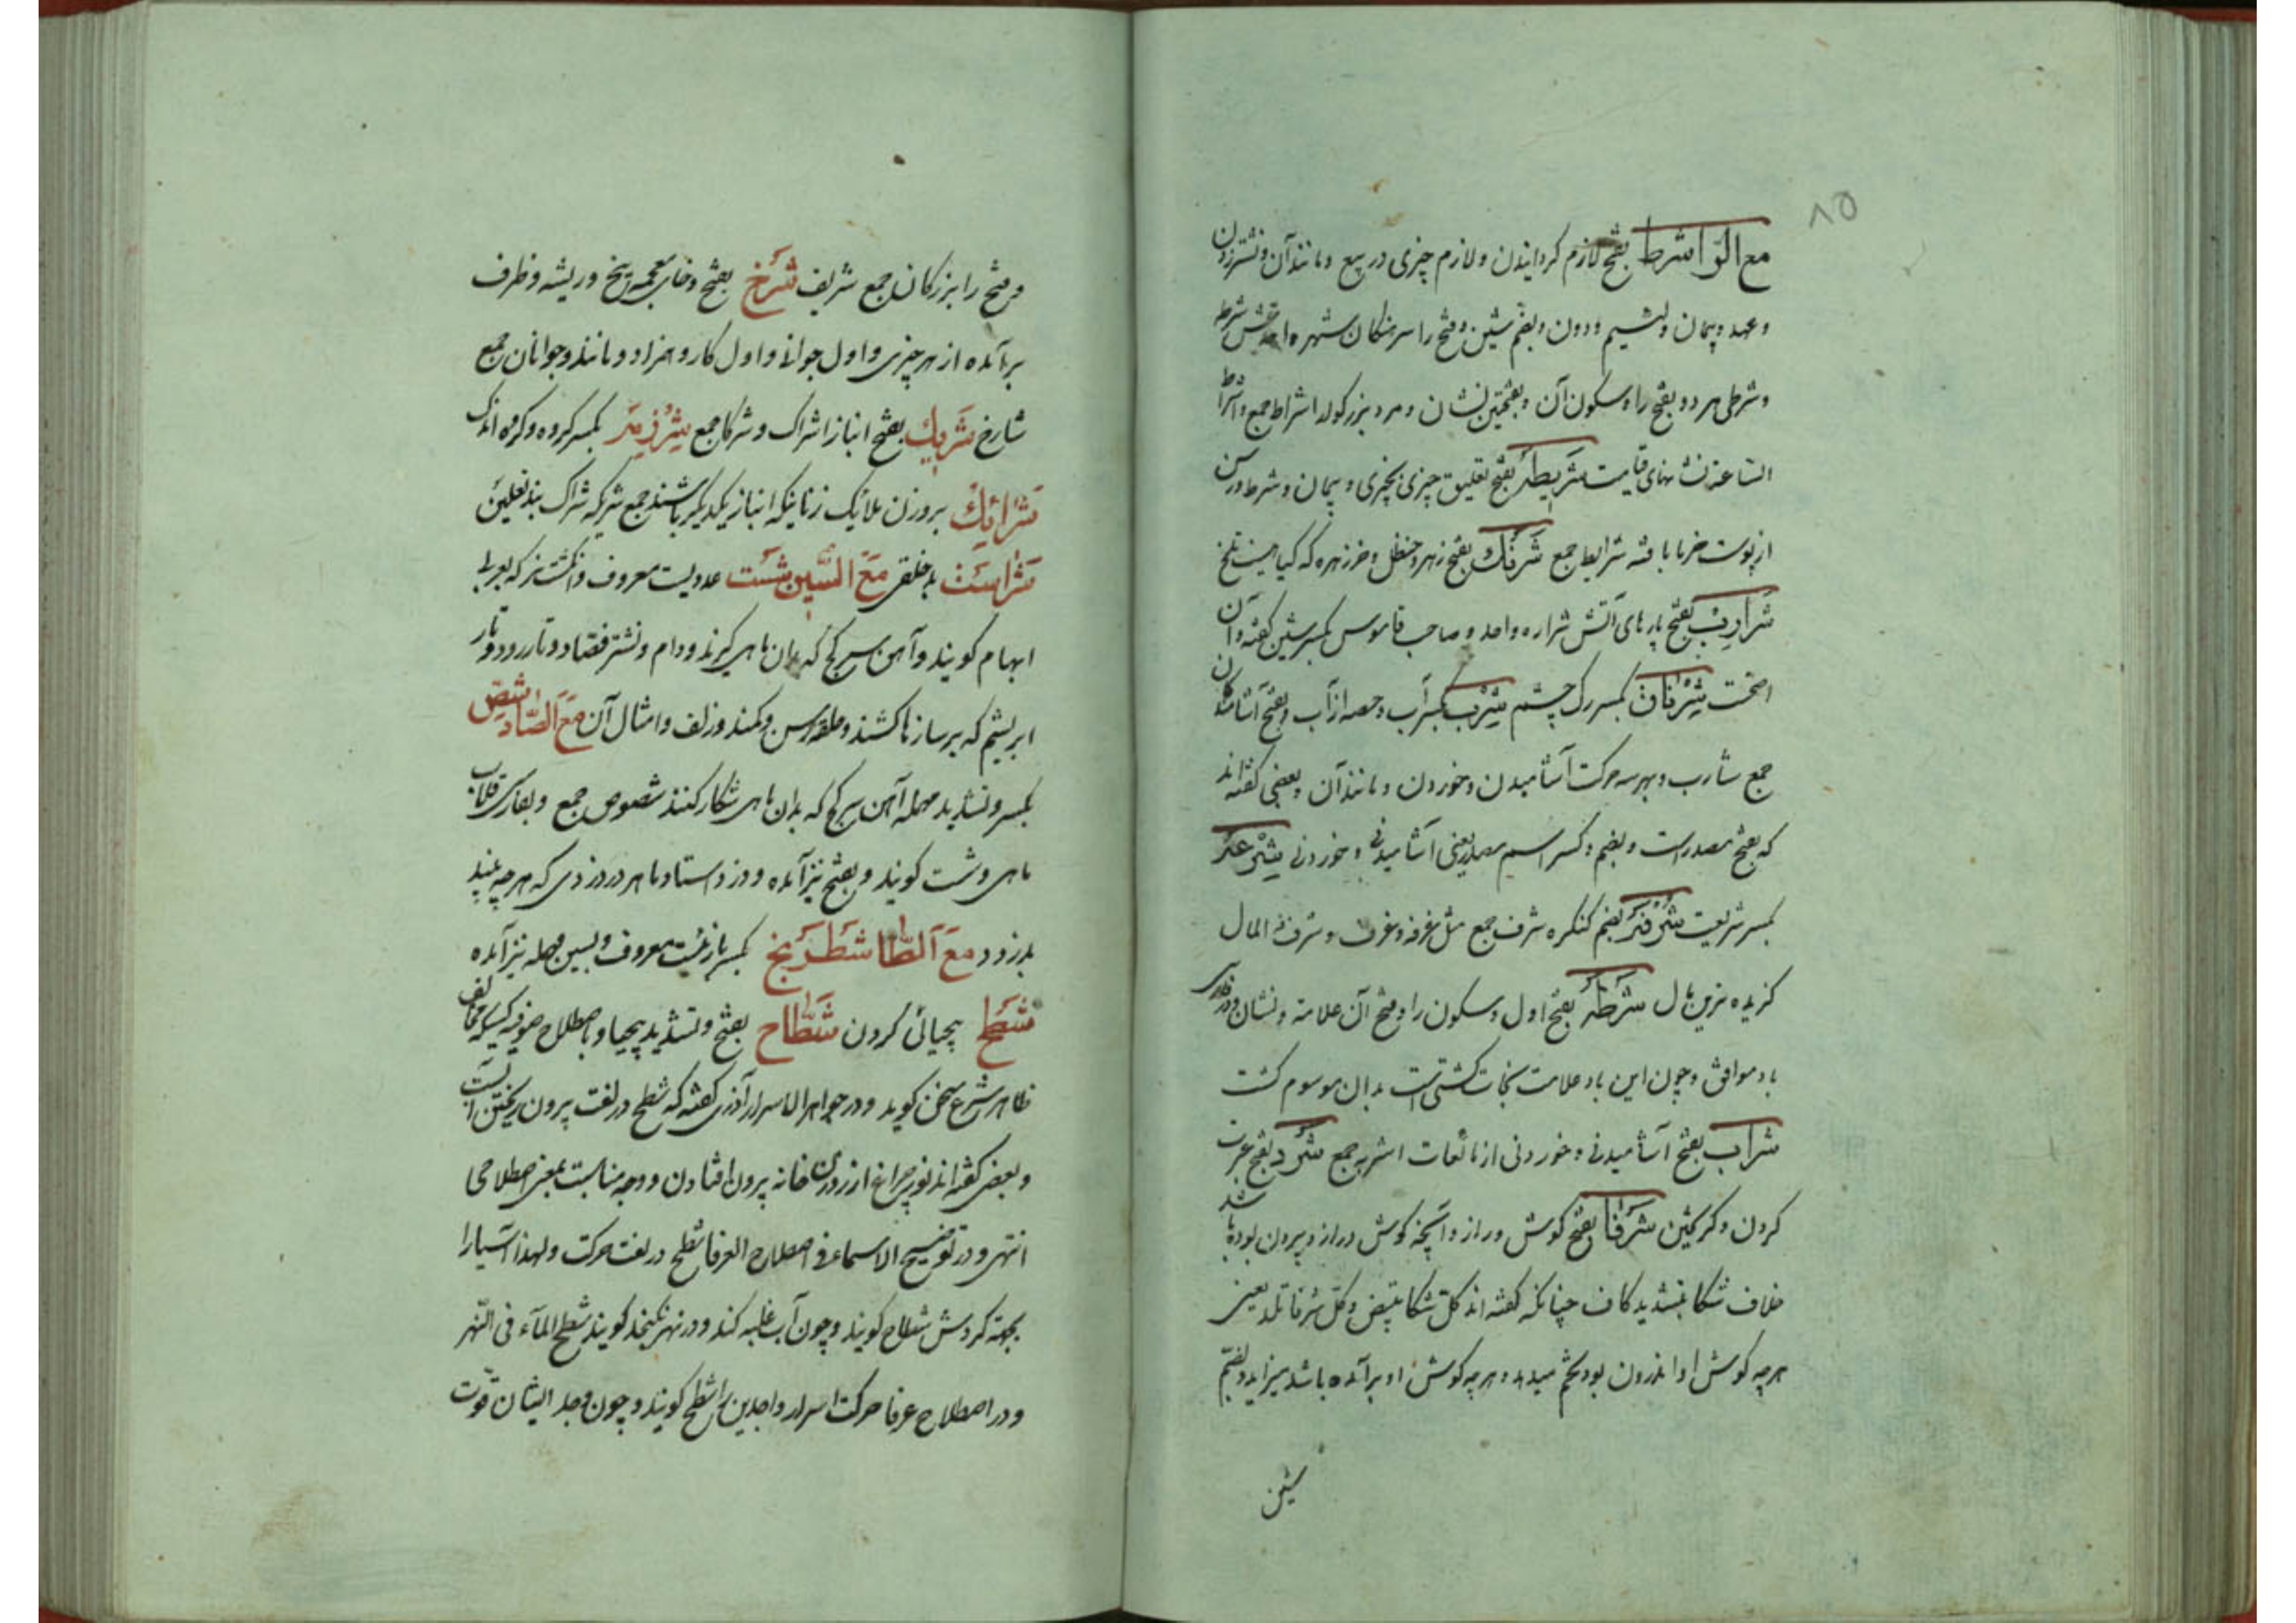 ۸۵
مع الرّا شرط بفتح لازم کردانیدن و لازم چیزی در بیع و مانند آن و نشتر زدن
و عهد و پیمان و بضم شین و فتح را سرهنکان شهره
و شرطی هر دو بفتح را و سکون آن و بفتحتین نشان و مرد بزرک اشراط جمع و اشراط
الساعة نشانهای قیامت شریطه بفتح تعلیق چیزی بچیزی و پیمان و شرط و رسن
از پوست خرما بافته شرایط جمع شرنک بفتح زهر و حنظل و خرزهره که کیاهیست تلخ
بفتح پارهای آتش شراره واحد و صاحب قاموس بکسر شین کفته و آن
اصحت شرناق بکسر رک چشم شرب بکسر آب و حصه از آب و بفتح آشامندکان
جمع شارب و بهر سه حرکت آشامیدن و خوردن و مانند آن و بعضی کفته‌اند
که بفتح مصدر است و بضم و کسر اسم مصدر یعنی آشامیدنی و خوردنی شرعه
بکسر شریعت شرفه بضم کنکره شرف جمع مثل غرفه و غرف و شرفة المال
کزیده ترین مال شرطه بفتح اول و سکون را و فتح آن علامة و نشان و در فارسی
باد موافق و چون این باد علامت نجات کشتی است بدان موسوم کشت
شراب بفتح آشامیدنی و خوردنی از مائعات اشربه جمع
کردن و کریختن شرفا بفتح کوش دراز و آنچه کوش دراز و بیرون بوده باشد
خلاف شکا بتشدید کاف چنانکه کفته اند کل شکا تبیض و کل شرفا تلد یعنی
هرچه کوش او اندرون بود تخم میدهد و هرچه کوش او برآمده باشد میزاید و بضم
شین
و فتح را بزرکان جمع شریف شرخ بفتح و خای معجمه بیخ و ریشه و طرف
برآمده از هر چیزی و اول جوانی و اول کار و همزاد و مانند و جوانان جمع
شارخ شریک بفتح انباز اشراک و شرکا جمع شرذمه بکسر کروه و کروه اندک
شرائک بروزن ملائک زنانیکه انباز یکدیکر باشند جمع شریکه شراک بند نعلین
شراست بدخلقی مع السّین شست عددیست معروف و انکشت نر که بعربی
ابهام کویند و آهن سرکج که بدان ماهی کیرند و دام و نشتر فصّاد و تار رود و تار
ابریشم که بر سازها کشند و حلقه رسن و کمند و زلف و امثال آن مع الصّاد شصّ
بکسر و تشدید مهمله آهن سرکج که بدان ماهی شکار کنند شصوص جمع و بفارسی قلاب
ماهی و شست کویند و بفتح نیز آمده و دزد استاد و ماهر در دزدی که هرچه بیند
بدزدد مع الطّا شطرنج بکسر بازئیست معروف و بسین مهمله نیز آمده
شطح بیحیائی کردن شطّاح بفتح و تشدید بیحیا و باصطلاح صوفیه کسیکه مخالف
ظاهر شرع سخن کوید و در جواهر الاسرار آذری کفته که شطح در لغت بیرون ریختن است
و بعضی کفته اند نور چراغ از روزن خانه بیرون افتادن و وجه مناسبت بمعنی اصطلاحی
انتهی و در توضیح الاسماء فی اصطلاح العرفا شطح در لغت حرکت و لهذا آسیا را
بجهة کردش شطاح کویند و چون آب غلبه کند و در نهر نکنجد کویند شطح المآء فی النّهر
و در اصطلاح عرفا حرکت اسرار واجدین را شطح کویند و چون وجد ایشان قوّت